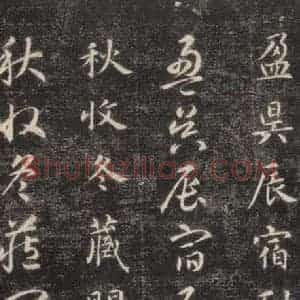 盈昃辰宿
盈昃辰宿
秋收冬藏
秋收冬藏